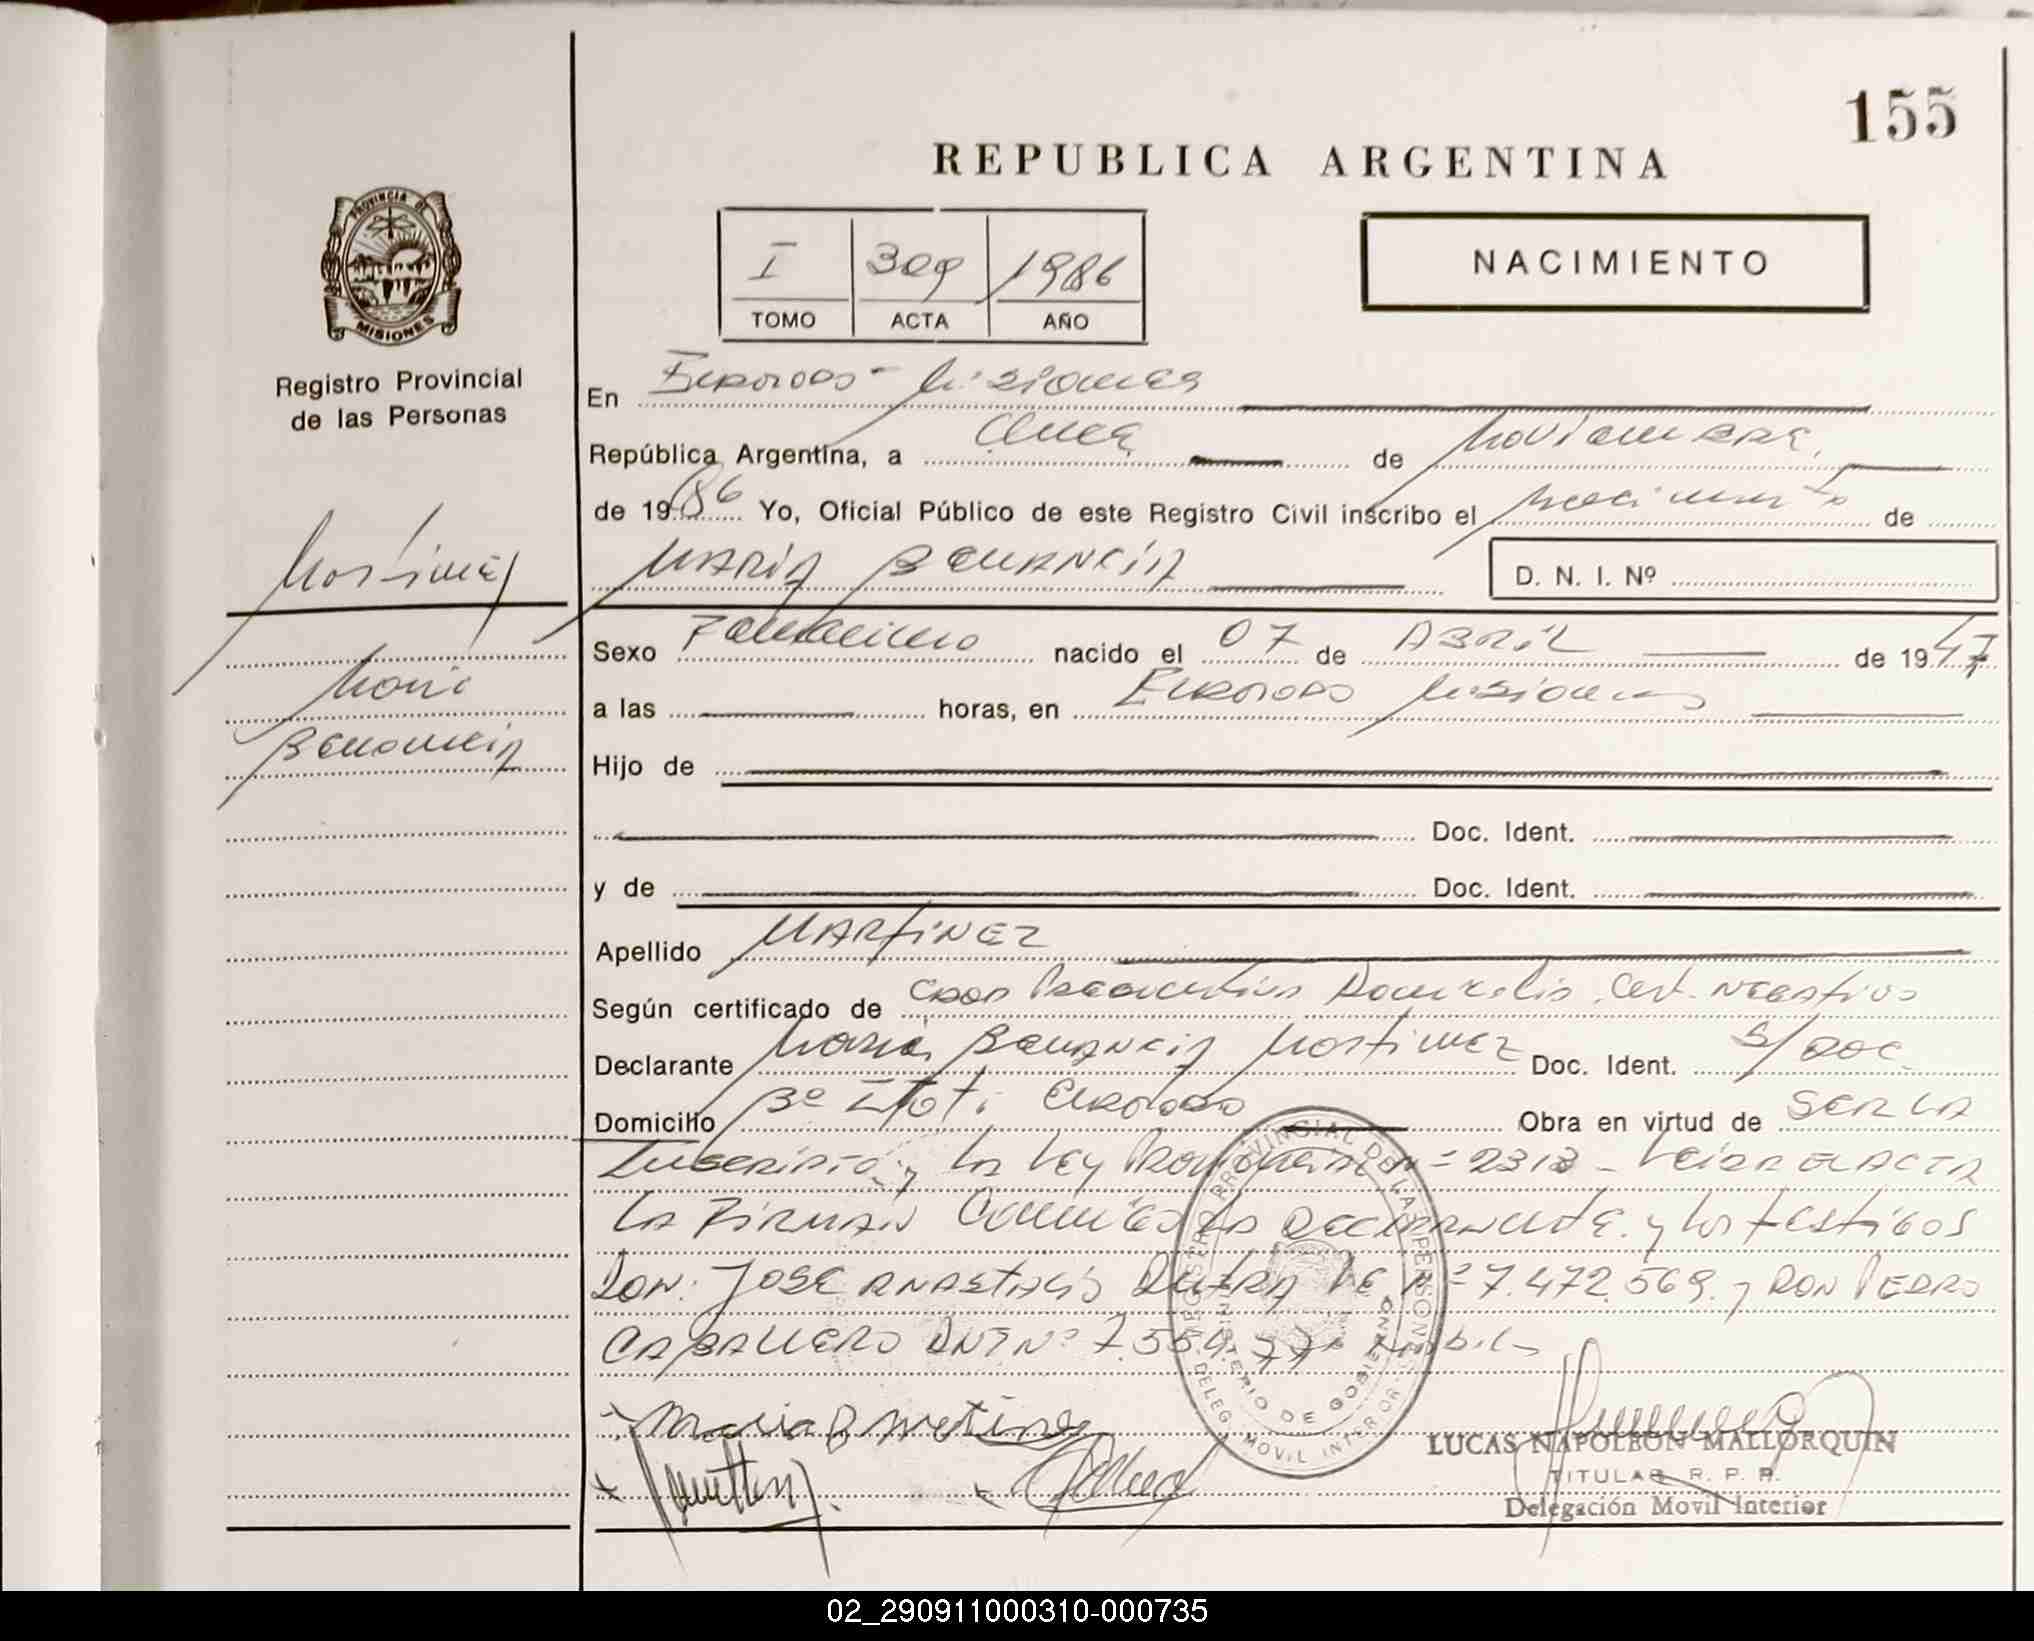 155
REPUBLICA ARGENTINA
PROVINCIA DE
MISIONES
Registro Provincial
de las Personas
I 309 1986
TOMO ACTA AÑO
NACIMIENTO
En Eldorado - Misiones
República Argentina, a Once de Noviembre
de 1986 Yo, Oficial Público de este Registro Civil inscribo el Nacimiento de
MARIA BENANCIA D. N. I. Nº
Martinez
Maria
Benancia
Sexo Femenino nacido el 07 de ABRIL de 1947
a las horas, en Eldorado Misiones
Hijo de
Doc. Ident.
y de Doc. Ident.
Apellido MARTINEZ
Según certificado de Edad Presuntiva Cert. Negativo
Declarante Maria Benancia Martinez Doc. Ident. S/Doc.
Domicilio Bº Eldorado Obra en virtud de SER LA
Inscripta y la Ley Provincial Nº 2313 - Leida el acta
la Firman Conmigo la Declarante y los testigos
Don: JOSE ANASTACIO DUTRA LE Nº 7.472.569 y DON PEDRO
CABALLERO DNI Nº
REGISTRO PROVINCIAL DE LAS PERSONAS
MINISTERIO DE GOBIERNO
DELEG. MOVIL INTERIOR
Maria B Martinez
LUCAS NAPOLEON MALLORQUIN
TITULAR R. P. P.
Delegación Movil Interior
02_290911000310-000735